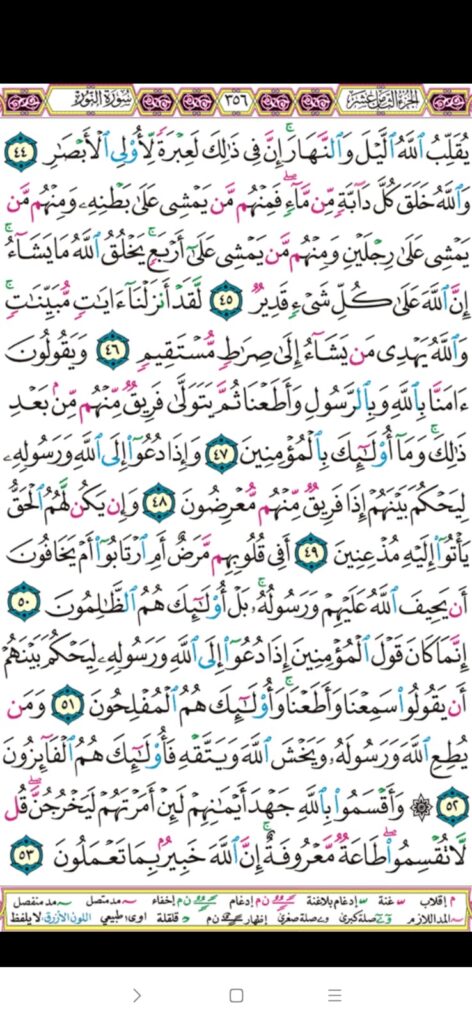 الجزء الثامن عشر ٣٥٦ سورة النور
يُقَلِّبُ ٱللَّهُ ٱلَّيْلَ وَٱلنَّهَارَ ۚ إِنَّ فِى ذَٰلِكَ لَعِبْرَةً لِّأُو۟لِى ٱلْأَبْصَٰرِ ٤٤
وَٱللَّهُ خَلَقَ كُلَّ دَآبَّةٍ مِّن مَّآءٍ ۖ فَمِنْهُم مَّن يَمْشِى عَلَىٰ بَطْنِهِۦ وَمِنْهُم مَّن
يَمْشِى عَلَىٰ رِجْلَيْنِ وَمِنْهُم مَّن يَمْشِى عَلَىٰٓ أَرْبَعٍ ۚ يَخْلُقُ ٱللَّهُ مَا يَشَآءُ ۚ
إِنَّ ٱللَّهَ عَلَىٰ كُلِّ شَىْءٍ قَدِيرٌ ٤٥ لَّقَدْ أَنزَلْنَآ ءَايَٰتٍ مُّبَيِّنَٰتٍ ۚ
وَٱللَّهُ يَهْدِى مَن يَشَآءُ إِلَىٰ صِرَٰطٍ مُّسْتَقِيمٍ ٤٦ وَيَقُولُونَ
ءَامَنَّا بِٱللَّهِ وَبِٱلرَّسُولِ وَأَطَعْنَا ثُمَّ يَتَوَلَّىٰ فَرِيقٌ مِّنْهُم مِّنۢ بَعْدِ
ذَٰلِكَ ۚ وَمَآ أُو۟لَٰٓئِكَ بِٱلْمُؤْمِنِينَ ٤٧ وَإِذَا دُعُوٓا۟ إِلَى ٱللَّهِ وَرَسُولِهِۦ
لِيَحْكُمَ بَيْنَهُمْ إِذَا فَرِيقٌ مِّنْهُم مُّعْرِضُونَ ٤٨ وَإِن يَكُن لَّهُمُ ٱلْحَقُّ
يَأْتُوٓا۟ إِلَيْهِ مُذْعِنِينَ ٤٩ أَفِى قُلُوبِهِم مَّرَضٌ أَمِ ٱرْتَابُوٓا۟ أَمْ يَخَافُونَ
أَن يَحِيفَ ٱللَّهُ عَلَيْهِمْ وَرَسُولُهُۥ ۚ بَلْ أُو۟لَٰٓئِكَ هُمُ ٱلظَّٰلِمُونَ ٥٠
إِنَّمَا كَانَ قَوْلَ ٱلْمُؤْمِنِينَ إِذَا دُعُوٓا۟ إِلَى ٱللَّهِ وَرَسُولِهِۦ لِيَحْكُمَ بَيْنَهُمْ
أَن يَقُولُوا۟ سَمِعْنَا وَأَطَعْنَا ۚ وَأُو۟لَٰٓئِكَ هُمُ ٱلْمُفْلِحُونَ ٥١ وَمَن
يُطِعِ ٱللَّهَ وَرَسُولَهُۥ وَيَخْشَ ٱللَّهَ وَيَتَّقْهِ فَأُو۟لَٰٓئِكَ هُمُ ٱلْفَآئِزُونَ
٥٢ ۞ وَأَقْسَمُوا۟ بِٱللَّهِ جَهْدَ أَيْمَٰنِهِمْ لَئِنْ أَمَرْتَهُمْ لَيَخْرُجُنَّ ۖ قُل
لَّا تُقْسِمُوا۟ ۖ طَاعَةٌ مَّعْرُوفَةٌ ۚ إِنَّ ٱللَّهَ خَبِيرٌۢ بِمَا تَعْمَلُونَ ٥٣
م إقلاب غنة إدغام بلاغنة ن م إدغام ن م إخفاء مد متصل مد منفصل
المد اللازم صلة كبرى صلة صغرى إظهار ن م قلقلة اوى طبيعي اللون الأزرق: لا يلفظ